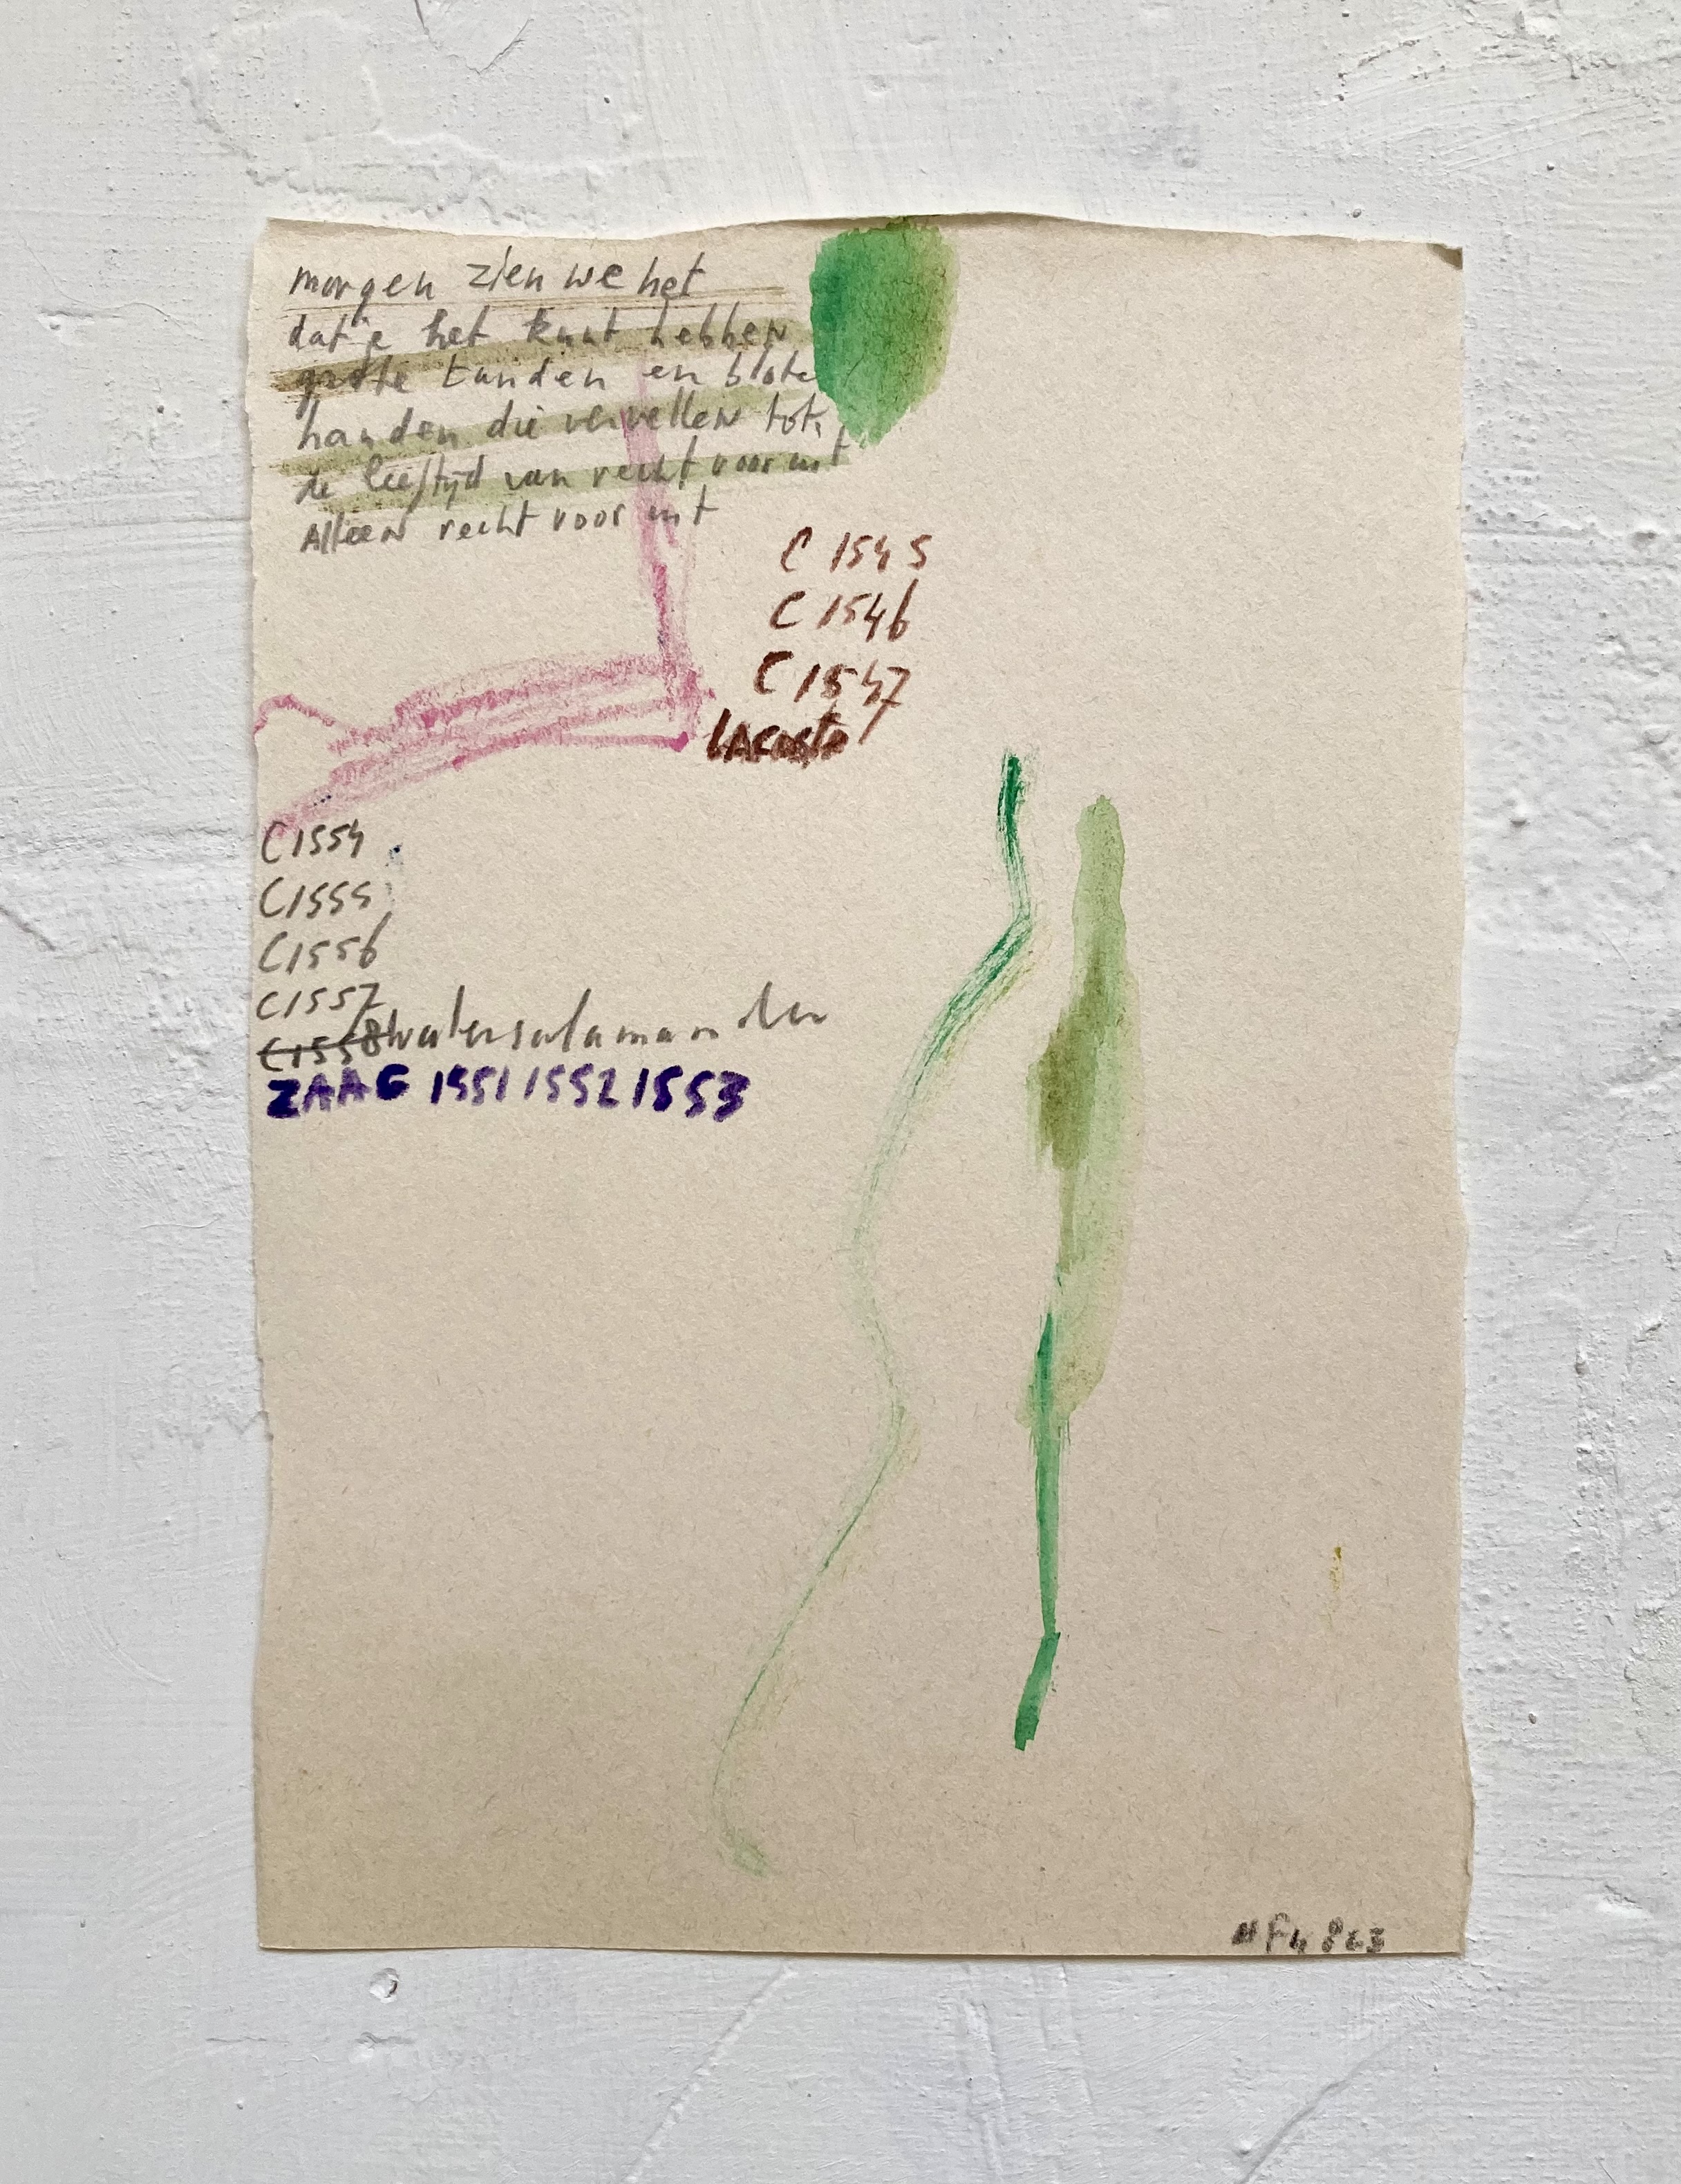 morgen zien we het
dat je het kunt hebben
grote tanden en blote
handen die vervellen tot
de leeftijd van recht voor uit
Alleen recht voor uit
C 1545
C 1546
C 1547
LAcoste
C1554
C1555
C1556
C1557
C1558 watersalamander
ZAAG 1551 1552 1553